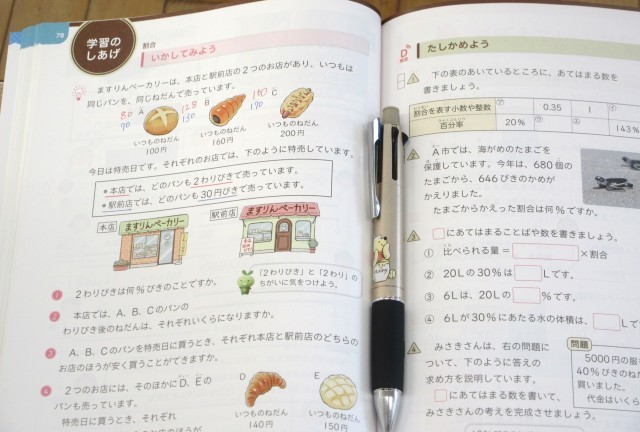 78
学習の
しあげ
割合
いかしてみよう
ますりんベーカリーは、本店と駅前店の2つのお店があり、いつも
同じパンを、同じねだんで売っています。
80 A
90
128 B
130
160 C
170
いつものねだん
100円
いつものねだん
160円
いつものねだん
200円
今日は特売日です。それぞれのお店では、下のように特売しています。
●本店では、どのパンも2わりびきで売っています。
●駅前店では、どのパンも30円びきで売っています。
本店
ますりんベーカリー
駅前店
ますりんベーカリー
「2わりびき」と「2わり」の
ちがいに気をつけよう。
1 2わりびきは何%びきのことですか。
2 本店では、A、B、Cのパンの
わりびき後のねだんは、それぞれいくらになりますか。
3 A、B、Cのパンを特売日に買うとき、それぞれ本店と駅前店のどちらの
お店のほうが安く買うことができますか。
4 2つのお店には、そのほかにD、Eの
パンも売っています。
特売日に買うとき、それぞれ
D
いつものねだん
140円
E
いつものねだん
150円
D
たしかめよう
1 下の表のあいているところに、あてはまる数を
書きましょう。
割合を表す小数や整数 ㋐ 0.35 1
百分率 20% 143%
2 A市では、海がめのたまごを
保護しています。今年は、680個の
たまごから、646ぴきのかめが
かえりました。
たまごからかえった割合は何%ですか。
3 □にあてはまることばや数を書きましょう。
① 比べられる量=□×割合
② 20Lの30%は□Lです。
③ 6Lは、20Lの□%です。
④ 6Lが30%にあたる水の体積は、□Lで
4 みさきさんは、右の問題に
ついて、下のように答えの
求め方を説明しています。
□にあてはまる数を書いて、
みさきさんの考えを完成させましょう。
問題
5000円の服
40%びきのね
買いました。
代金はいくら